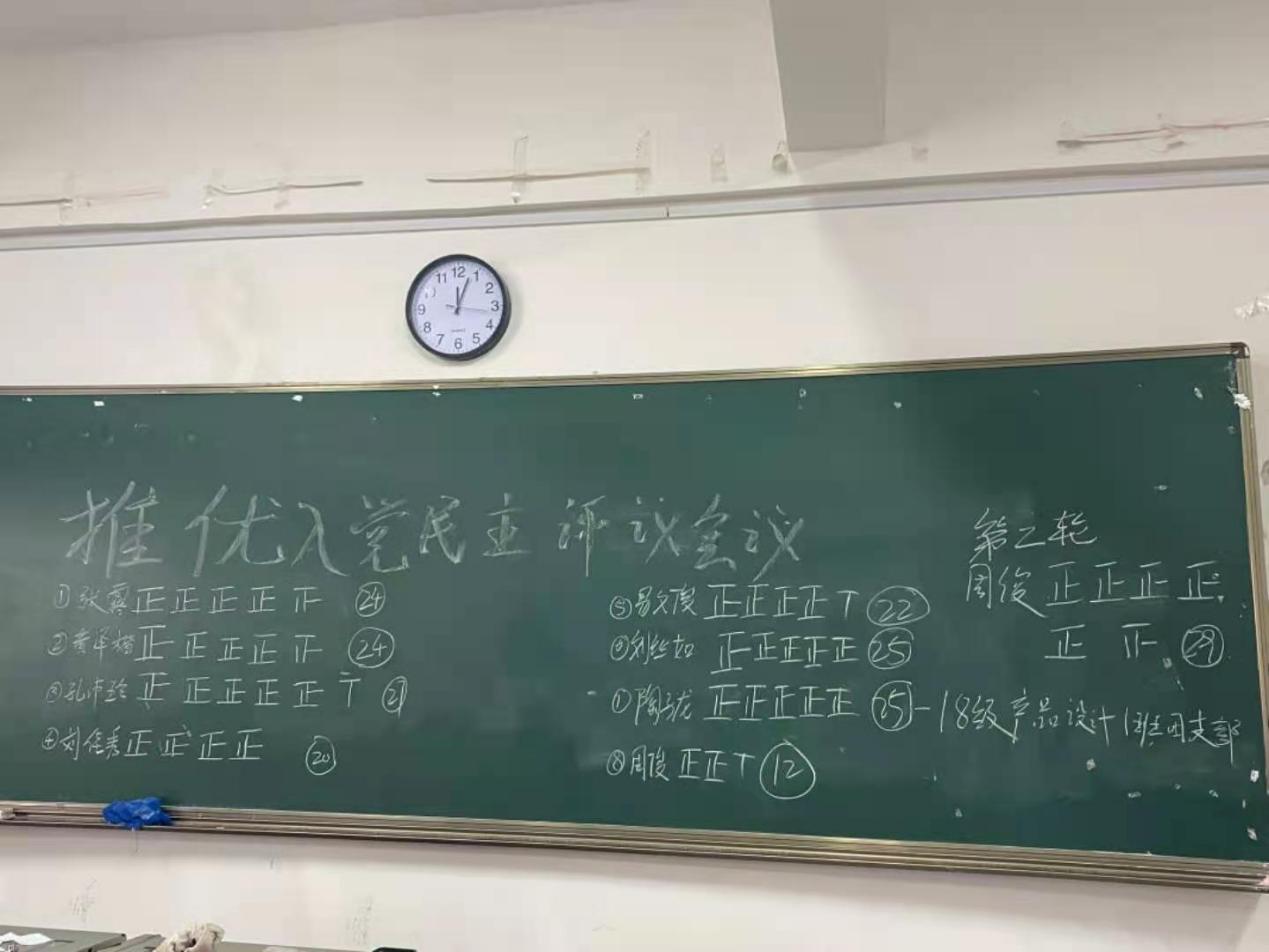 推优入党民主评议会议
①张露正正正正正 24
②黄泽楷正正正正正 24
③孔沛玲正正正正正丅 27
④刘佳秀正正正正 20
⑤易文俊正正正正丅 22
⑥刘丝如正正正正正 25
⑦陶云龙正正正正正 25-18级产品设计1班团支部
⑧周俊正正丅 12
第二轮
周俊正正正正
正正 29
12
1
2
3
4
5
6
7
8
9
11